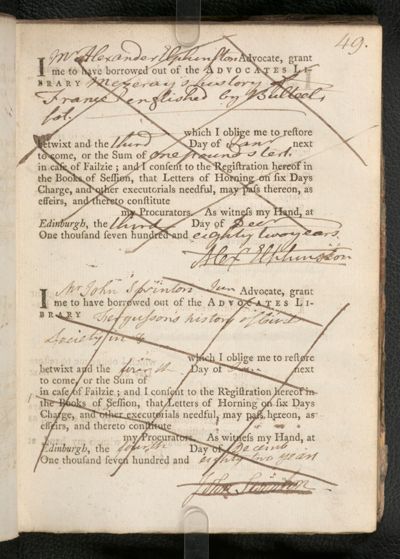 49.
I Mr Alexander Elphinston Advocate, grant
me to have borrowed out of the ADVOCATES LI-
BRARY Mezeray's history of
France englished by Bulteel
fol.
which I oblige me to restore
betwixt and the third Day of Janr next
to come, or the Sum of one pound sterl.
in case of Failzie; and I consent to the Registration hereof in
the Books of Session, that Letters of Horning on six Days
Charge, and other executorials needful, may pass thereon, as
effeirs, and thereto constitute
my Procurators. As witness my Hand, at
Edinburgh, the third Day of Decr
One thousand seven hundred and eighty two years.
Alex Elphinston
I Mr John Swinton Jun Advocate, grant
me to have borrowed out of the ADVOCATES LI-
BRARY Fergusson's history of Civil
Society in 4
which I oblige me to restore
betwixt and the fourth Day of Jan next
to come, or the Sum of
in case of Failzie; and I consent to the Registration hereof in
the Books of Session, that Letters of Horning on six Days
Charge, and other executorials needful, may pass hereon, as
effeirs, and thereto constitute
my Procurators. As witness my Hand, at
Edinburgh, the fourth Day of Decemb
One thousand seven hundred and eighty two years
John Swinton